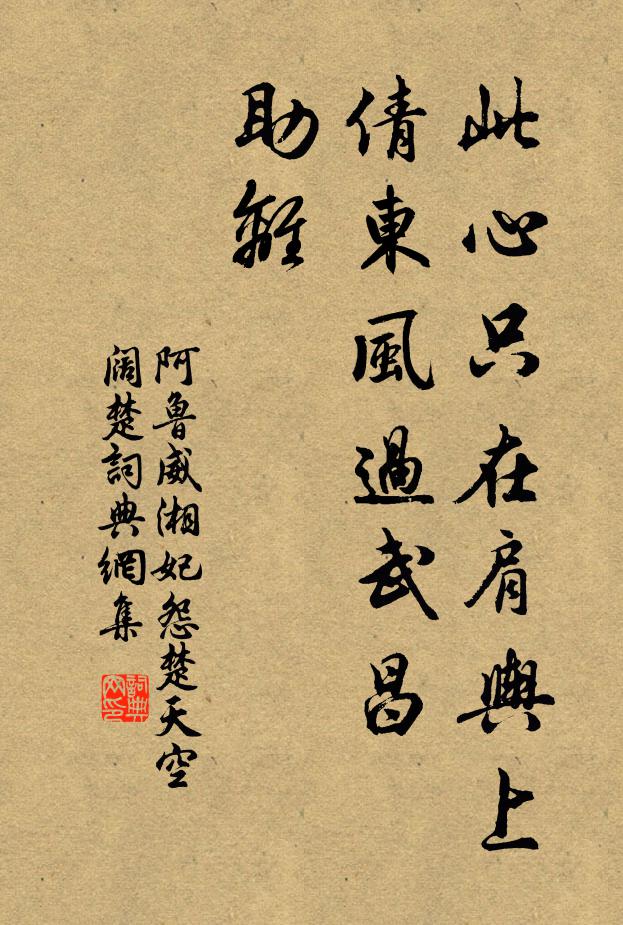 此心只在肩輿上
倩東風過武昌
助離
阿魯威湘妃怨楚天空
闊楚詞典網集
詞典